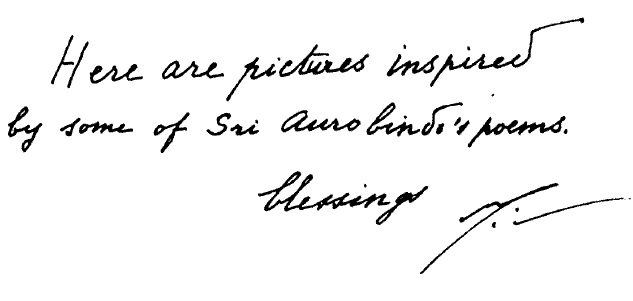 Here are pictures inspired
by some of Sri Aurobindo's poems.
blessings